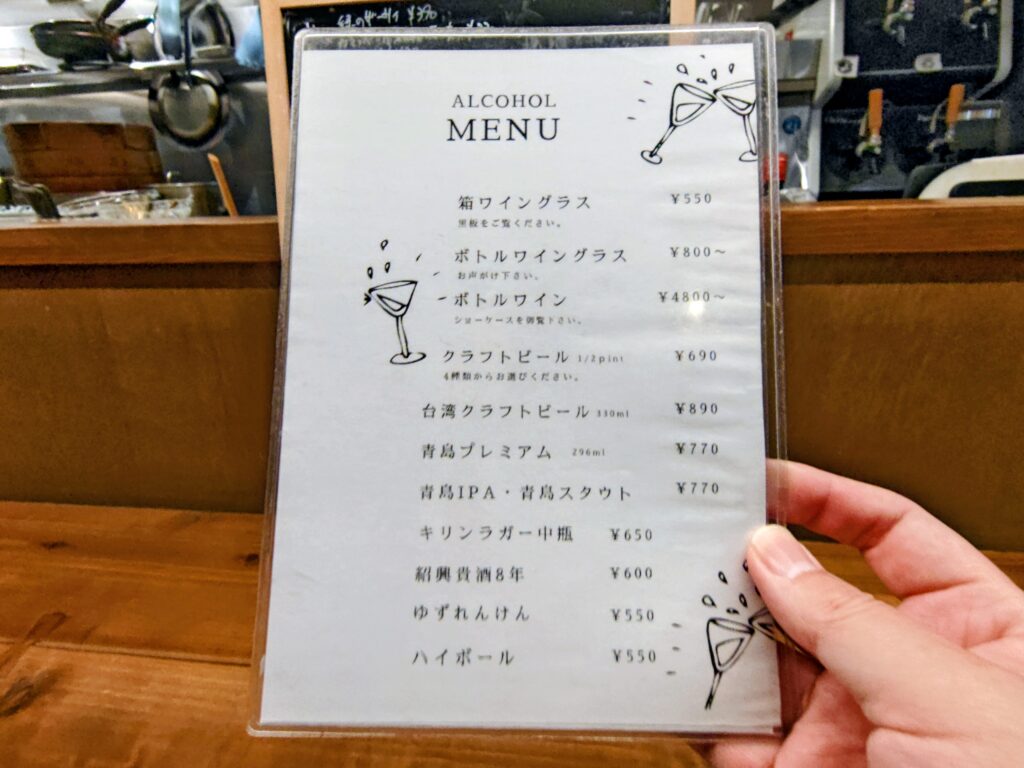 ALCOHOL
MENU
箱ワイングラス ¥550
黒板をご覧ください。
ボトルワイングラス ¥800～
お声がけ下さい。
ボトルワイン ¥4800～
ショーケースを御覧下さい。
クラフトビール 1/2pint ¥690
4種類からお選びください。
台湾クラフトビール 330ml ¥890
青島プレミアム 296ml ¥770
青島IPA・青島スタウト ¥770
キリンラガー中瓶 ¥650
紹興貴酒8年 ¥600
ゆずれんけん ¥550
ハイボール ¥550